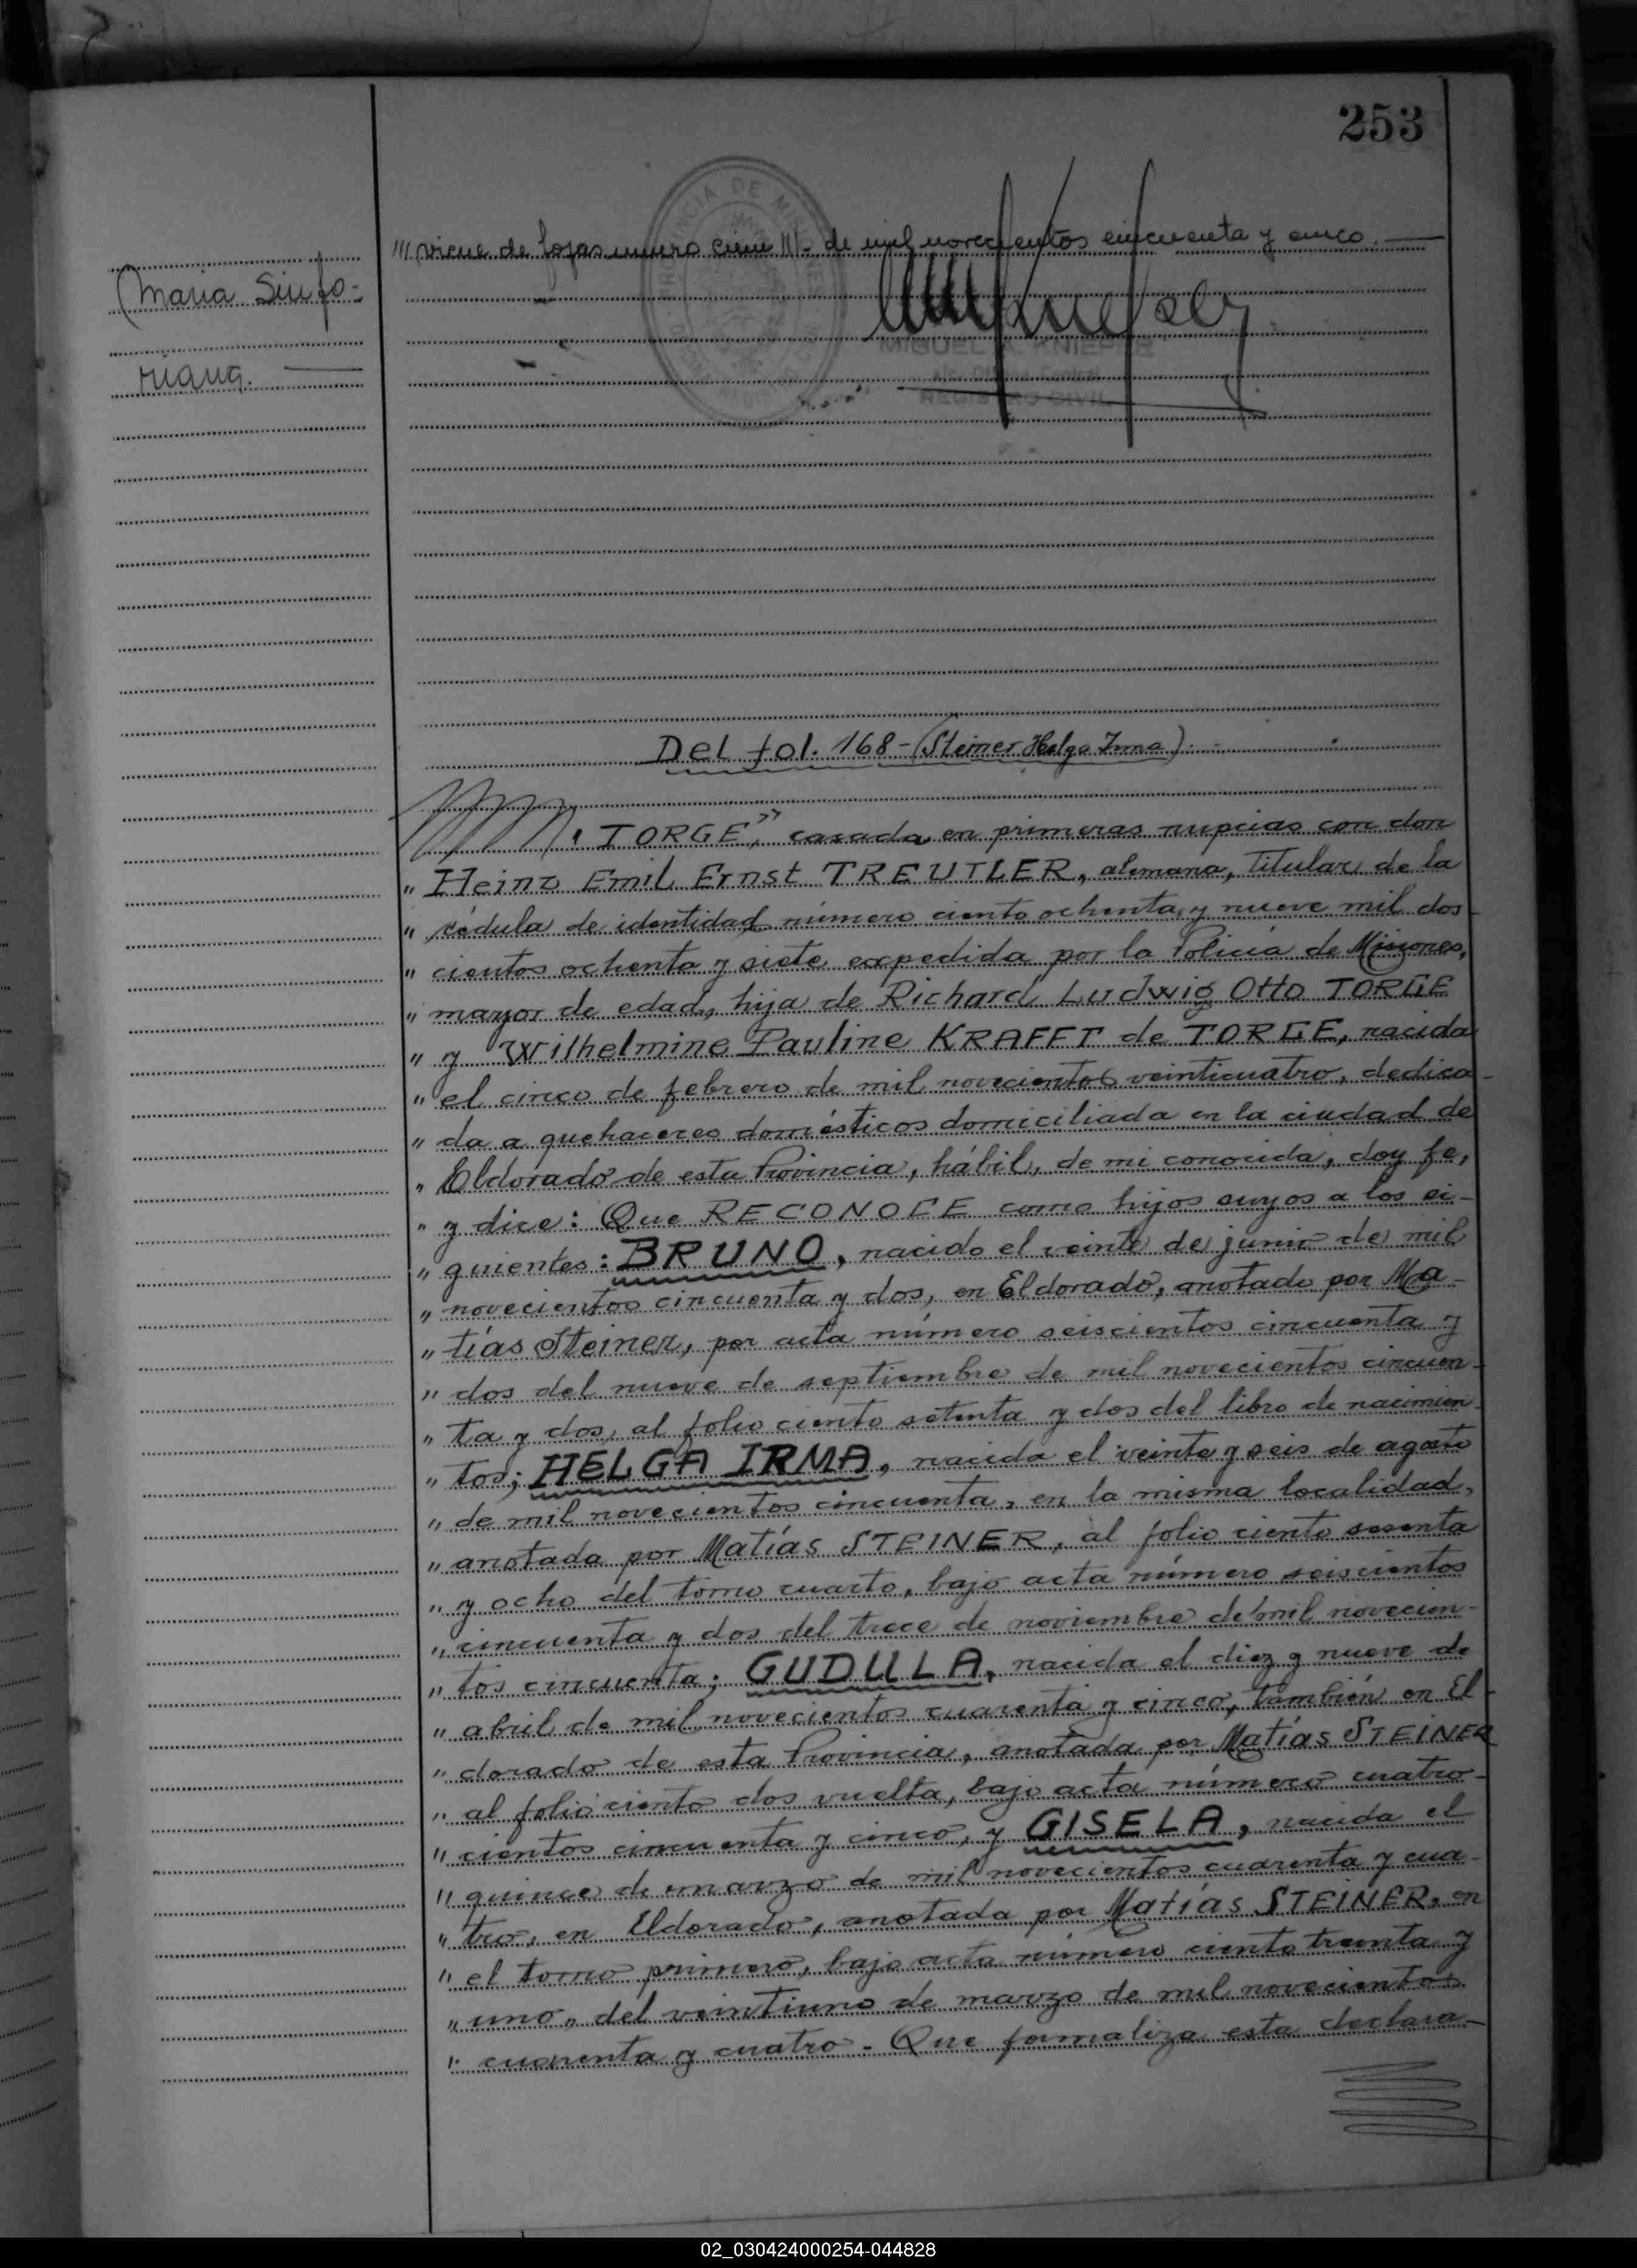 253
/// viene de fojas número cien ///- de mil novecientos cincuenta y cinco.
(Maria Sinfo-
riana.
PROVINCIA DE MISIONES
MIGUEL A. KNIEPER
a/c. Oficina Central
REGISTRO CIVIL
Del fol. 168 - (Steiner Helga Irma).
TORGE", casada en primeras nupcias con don
" Heinz Emil Ernst TREUTLER, alemana, Titular de la
" cédula de identidad número ciento ochenta y nueve mil dos-
" cientos ochenta y siete expedida por la Policía de Misiones,
" mayor de edad, hija de Richard Ludwig Otto TORGE
" y Wilhelmine Pauline KRAFFT de TORGE, nacida
" el cinco de febrero de mil novecientos veinticuatro, dedica-
" da a quehaceres domésticos domiciliada en la ciudad de
" Eldorado de esta Provincia, hábil, de mi conocida, doy fe,
" y dice: Que RECONOCE como hijos suyos a los si-
" guientes: BRUNO, nacido el veinte de junio de mil
" novecientos cincuenta y dos, en Eldorado, anotado por Ma-
" tías Steiner, por acta número seiscientos cincuenta y
" dos del nueve de septiembre de mil novecientos cincuen-
" ta y dos, al folio ciento setenta y dos del libro de nacimien-
" tos; HELGA IRMA, nacida el veinte y seis de agosto
" de mil novecientos cincuenta, en la misma localidad,
" anotada por Matías STEINER, al folio ciento sesenta
" y ocho del tomo cuarto, bajo acta número seiscientos
" cincuenta y dos del trece de noviembre de mil novecien-
" tos cincuenta; GUDULA, nacida el diez y nueve de
" abril de mil novecientos cuarenta y cinco, también en El-
" dorado de esta Provincia, anotada por Matías STEINER
" al folio ciento dos vuelta, bajo acta número cuatro-
" cientos cincuenta y cinco, y GISELA, nacida el
" quince de marzo de mil novecientos cuarenta y cua-
" tro, en Eldorado, anotada por Matías STEINER, en
" el tomo primero, bajo acta número ciento treinta y
" uno, del veintiuno de marzo de mil novecientos
" cuarenta y cuatro. - Que formaliza esta declara-
02_030424000254-044828